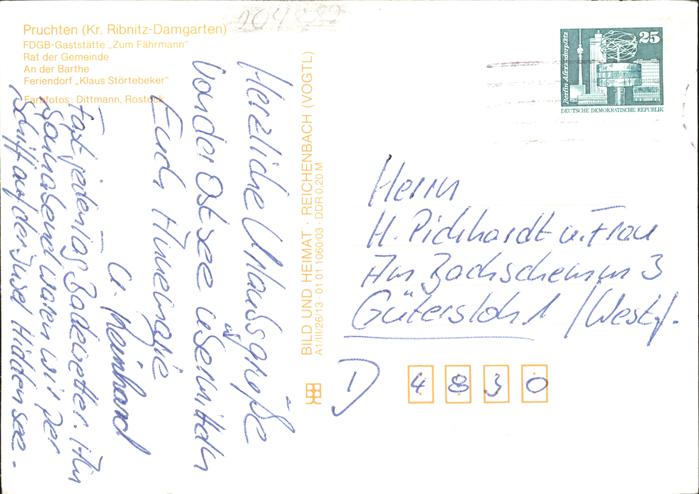 Pruchten (Kr. Ribnitz-Damgarten)
FDGB-Gaststätte „Zum Fährmann"
Rat der Gemeinde
An der Barthe
Feriendorf „Klaus Störtebeker"
Farbfotos: Dittmann, Rostock
Herzliche Urlaubsgrüße
von der Ostsee übermitteln
Euch Annemarie
u. Reinhard
Fast jeden Tag Badewetter. Am
Sonnabend waren wir per
Schiff auf der Insel Hiddensee.
BILD UND HEIMAT · REICHENBACH (VOGTL)
A1/III/26/13 01 01 1060/03 DDR 0,20 M
25
Berlin, Alexanderplatz
DEUTSCHE DEMOKRATISCHE REPUBLIK
Herrn
H. Pickhardt u. Frau
Am 3
Gütersloh 1 /Westf.
D 4830